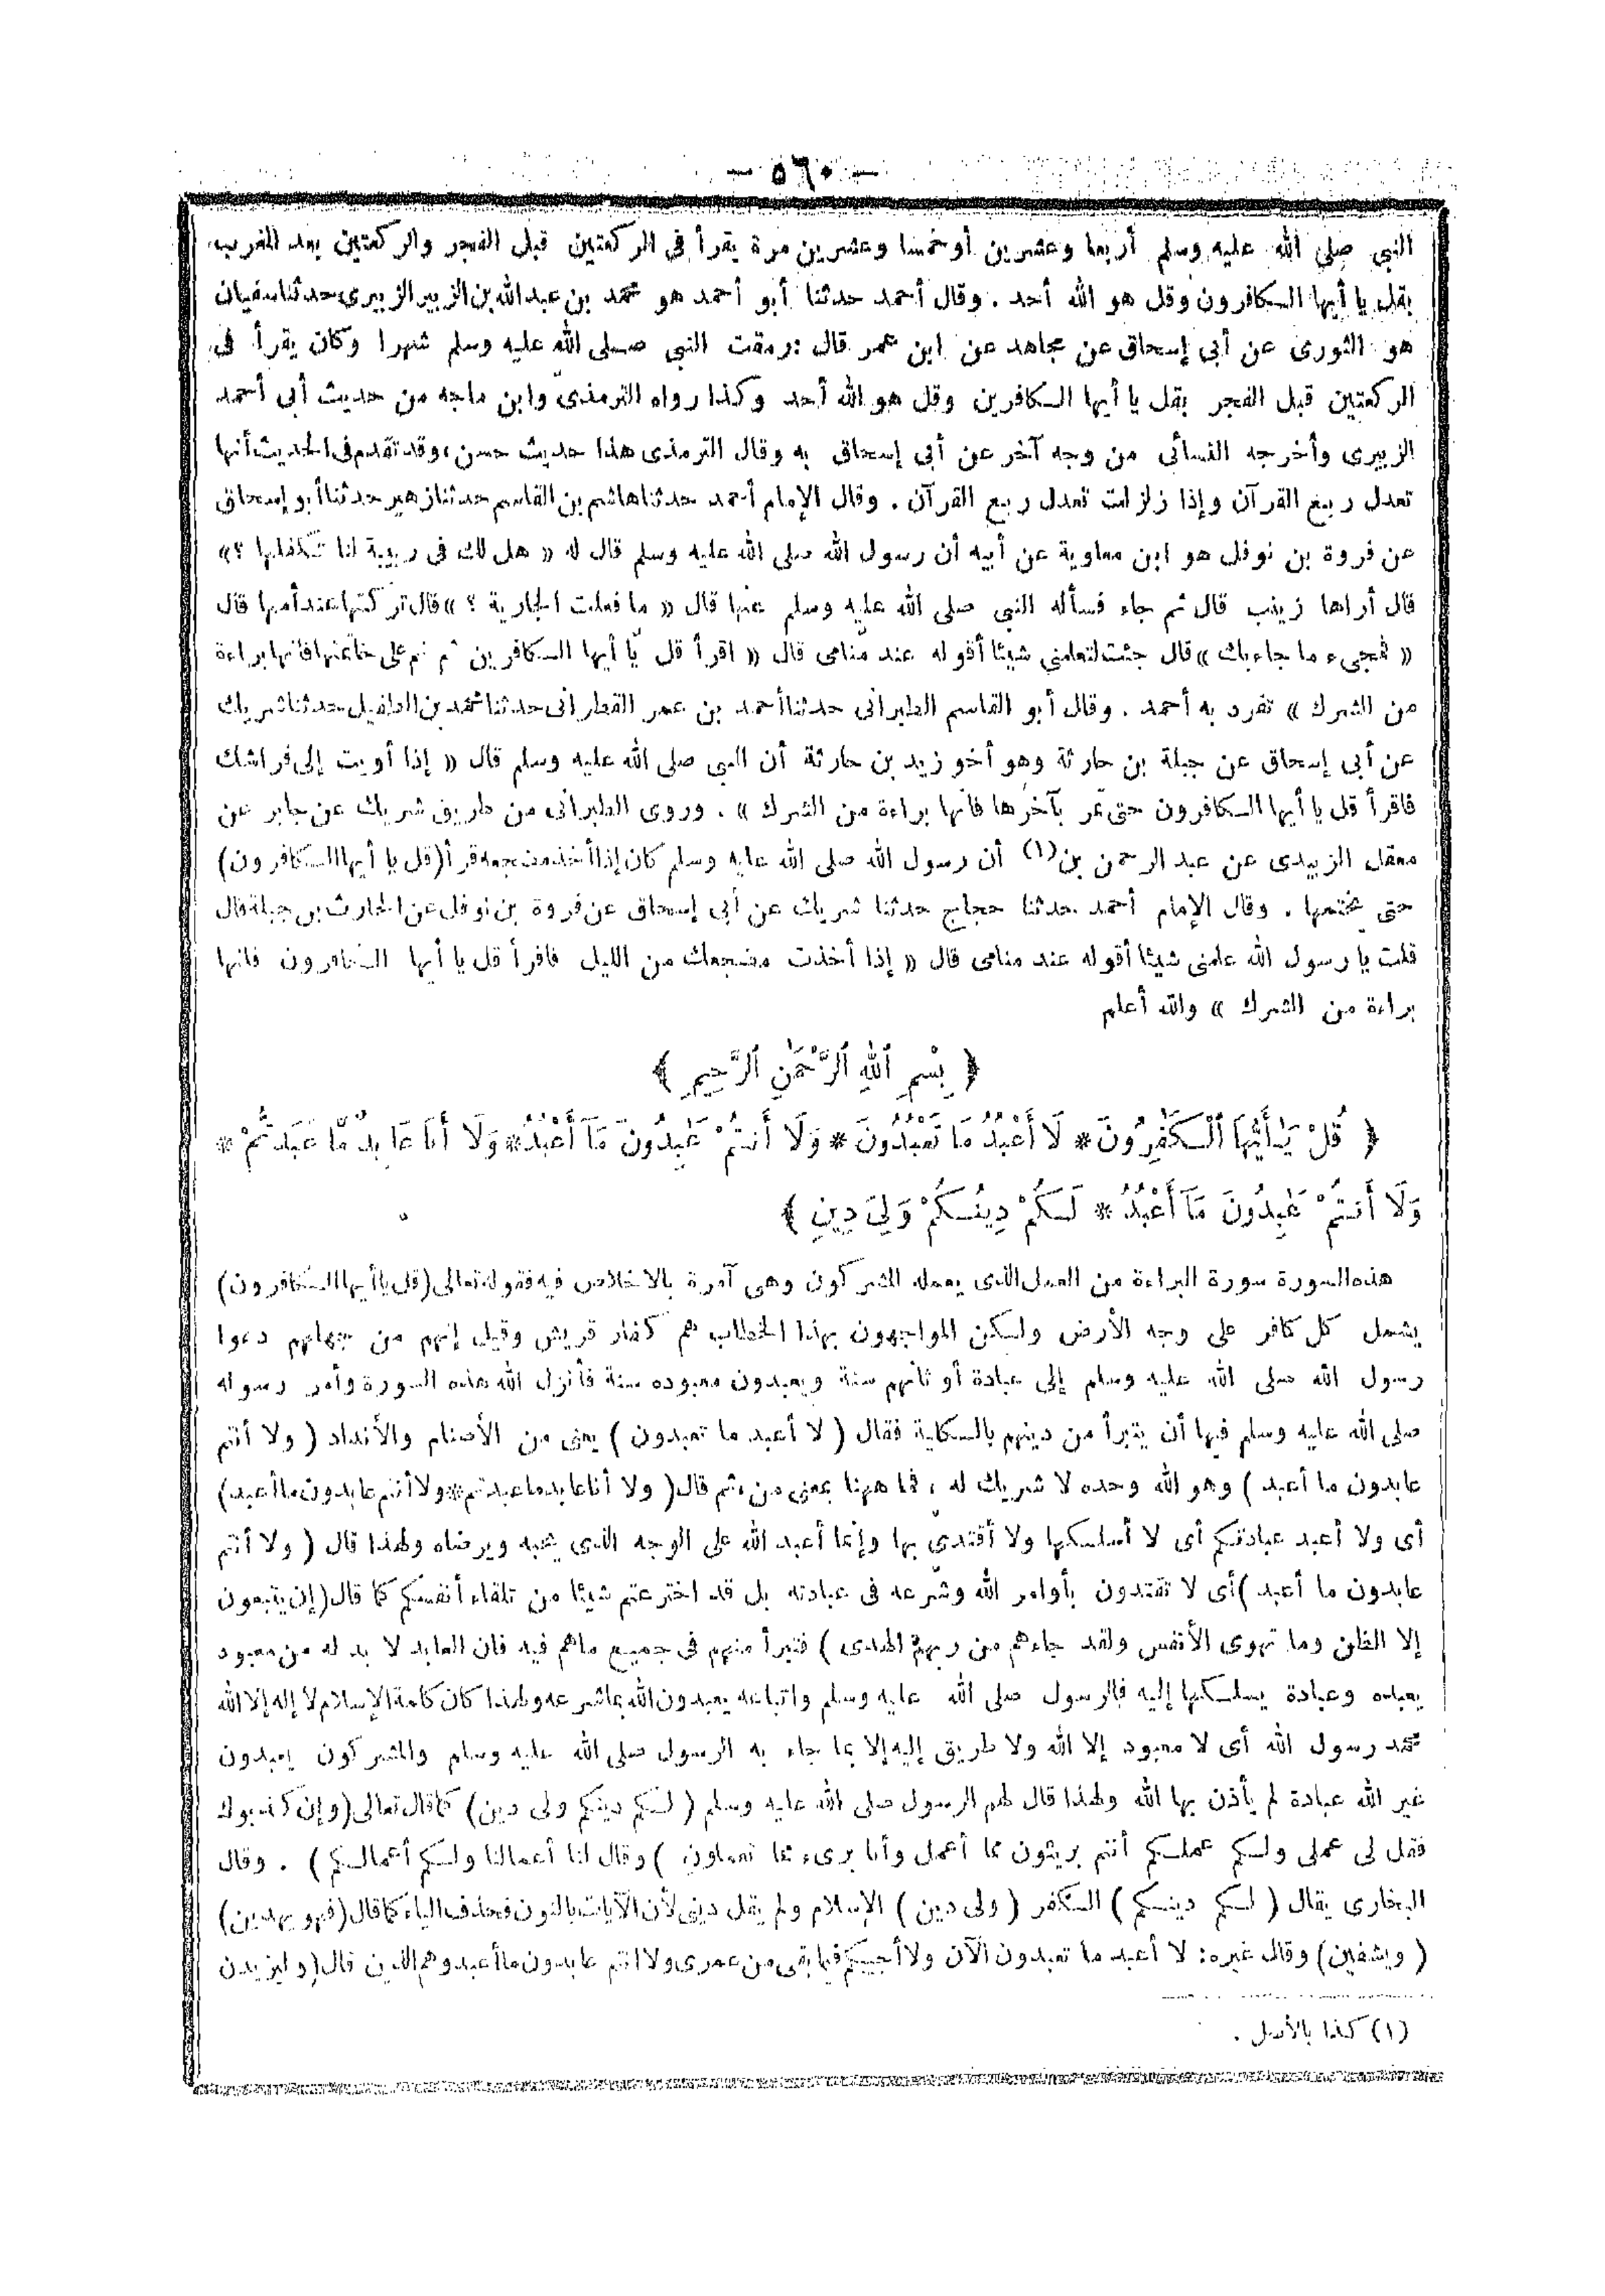 — ٥٦٠ —
النبي صلى الله عليه وسلم أربعا وعشرين أو خمسا وعشرين مرة يقرأ في الركعتين قبل الفجر والركعتين بعد المغرب
بقل يا أيها الكافرون وقل هو الله أحد . وقال أحمد حدثنا أبو أحمد هو محمد بن عبد الله بن الزبير الزبيرى حدثنا سفيان
هو الثورى عن أبي إسحاق عن مجاهد عن ابن عمر قال : رمقت النبي صلى الله عليه وسلم شهرا وكان يقرأ فى
الركعتين قبل الفجر بقل يا أيها الكافرين وقل هو الله أحد وكذا رواه الترمذى وابن ماجه من حديث أبى أحمد
الزبيرى وأخرجه النسائى من وجه آخر عن أبى إسحاق به وقال الترمذى هذا حديث حسن ، وقد تقدم فى الحديث أنها
تعدل ربع القرآن وإذا زلزلت تعدل ربع القرآن . وقال الإمام أحمد حدثنا هاشم بن القاسم حدثنا زهير حدثنا أبو إسحاق
عن فروة بن نوفل هو ابن معاوية عن أبيه أن رسول الله صلى الله عليه وسلم قال له « هل لك فى ربيبة لنا تكفلها ؟ »
قال أراها زينب قال ثم جاء فسأله النبي صلى الله عليه وسلم عنها قال « ما فعلت الجارية ؟ » قال تركتها عند أمها قال
« فمجىء ما جاء بك » قال جئت لتعلمني شيئا أقوله عند منامى قال « اقرأ قل يا أيها الكافرين ثم نم على خاتمتها فانها براءة
من الشرك » تفرد به أحمد . وقال أبو القاسم الطبرانى حدثنا أحمد بن عمر القطرانى حدثنا محمد بن الطفيل حدثنا شريك
عن أبى إسحاق عن جبلة بن حارثة وهو أخو زيد بن حارثة أن النبى صلى الله عليه وسلم قال « إذا أويت إلى فراشك
فاقرأ قل يا أيها الكافرون حتى تمر بآخرها فانها براءة من الشرك » . وروى الطبرانى من طريق شريك عن جابر عن
معقل الزبيدى عن عبد الرحمن بن(١) أن رسول الله صلى الله عليه وسلم كان إذا أخذ مضجعه قرأ (قل يا أيها الكافرون)
حتى يختمها . وقال الإمام أحمد حدثنا حجاج حدثنا شريك عن أبى إسحاق عن فروة بن نوفل عن الحارث بن جبلة قال
قلت يا رسول الله علمنى شيئا أقوله عند منامى قال « إذا أخذت مضجعك من الليل فاقرأ قل يا أيها الكافرون فانها
براءة من الشرك » والله أعلم
﴿ بِسْمِ ٱللهِ ٱلرَّحْمَٰنِ ٱلرَّحِيمِ ﴾
﴿ قُلْ يَٰٓأَيُّهَا ٱلْكَٰفِرُونَ * لَا أَعْبُدُ مَا تَعْبُدُونَ * وَلَا أَنتُمْ عَٰبِدُونَ مَآ أَعْبُدُ * وَلَا أَنَا عَابِدٌ مَّا عَبَدتُّمْ *
وَلَا أَنتُمْ عَٰبِدُونَ مَآ أَعْبُدُ * لَكُمْ دِينُكُمْ وَلِىَ دِينِ ﴾
هذه السورة سورة البراءة من العمل الذى يعمله المشركون وهى آمرة بالاخلاص فيه فقوله تعالى (قل يا أيها الكافرون)
يشمل كل كافر على وجه الأرض ولكن المواجهون بهذا الخطاب هم كفار قريش وقيل إنهم من جهلهم دعوا
رسول الله صلى الله عليه وسلم إلى عبادة أوثانهم سنة ويعبدون معبوده سنة فأنزل الله هذه السورة وأمر رسوله
صلى الله عليه وسلم فيها أن يتبرأ من دينهم بالكلية فقال ( لا أعبد ما تعبدون ) يعنى من الأصنام والأنداد ( ولا أنتم
عابدون ما أعبد ) وهو الله وحده لا شريك له ، فما ههنا بمعنى من ، ثم قال ( ولا أنا عابد ما عبدتم * ولا أنتم عابدون ما أعبد )
أى ولا أعبد عبادتكم أى لا أسلكها ولا أقتدى بها وإنما أعبد الله على الوجه الذى يحبه ويرضاه ولهذا قال ( ولا أنتم
عابدون ما أعبد ) أى لا تقتدون بأوامر الله وشرعه فى عبادته بل قد اخترعتم شيئا من تلقاء أنفسكم كما قال (إن يتبعون
إلا الظن وما تهوى الأنفس ولقد جاءهم من ربهم الهدى ) فتبرأ منهم فى جميع ماهم فيه فان العابد لا بد له من معبود
يعبده وعبادة يسلكها إليه فالرسول صلى الله عليه وسلم واتباعه يعبدون الله بما شرعه ولهذا كان كلمة الإسلام لا إله إلا الله
محمد رسول الله أى لا معبود إلا الله ولا طريق إليه إلا بما جاء به الرسول صلى الله عليه وسلم والمشركون يعبدون
غير الله عبادة لم يأذن بها الله ولهذا قال لهم الرسول صلى الله عليه وسلم ( لكم دينكم ولى دين ) كما قال تعالى (وإن كذبوك
فقل لى عملى ولكم عملكم أنتم بريئون مما أعمل وأنا برىء مما تعملون ) وقال لنا أعمالنا ولكم أعمالكم ) . وقال
البخارى يقال ( لكم دينكم ) الكفر ( ولى دين ) الإسلام ولم يقل دينى لأن الآيات بالنون فحذف الياء كما قال (فهو يهدين)
( ويشفين) وقال غيره : لا أعبد ما تعبدون الآن ولا أجيبكم فيما بقى من عمرى ولا أنتم عابدون ما أعبد وهم الذين قال (وليزيدن
(١) كذا بالأصل .